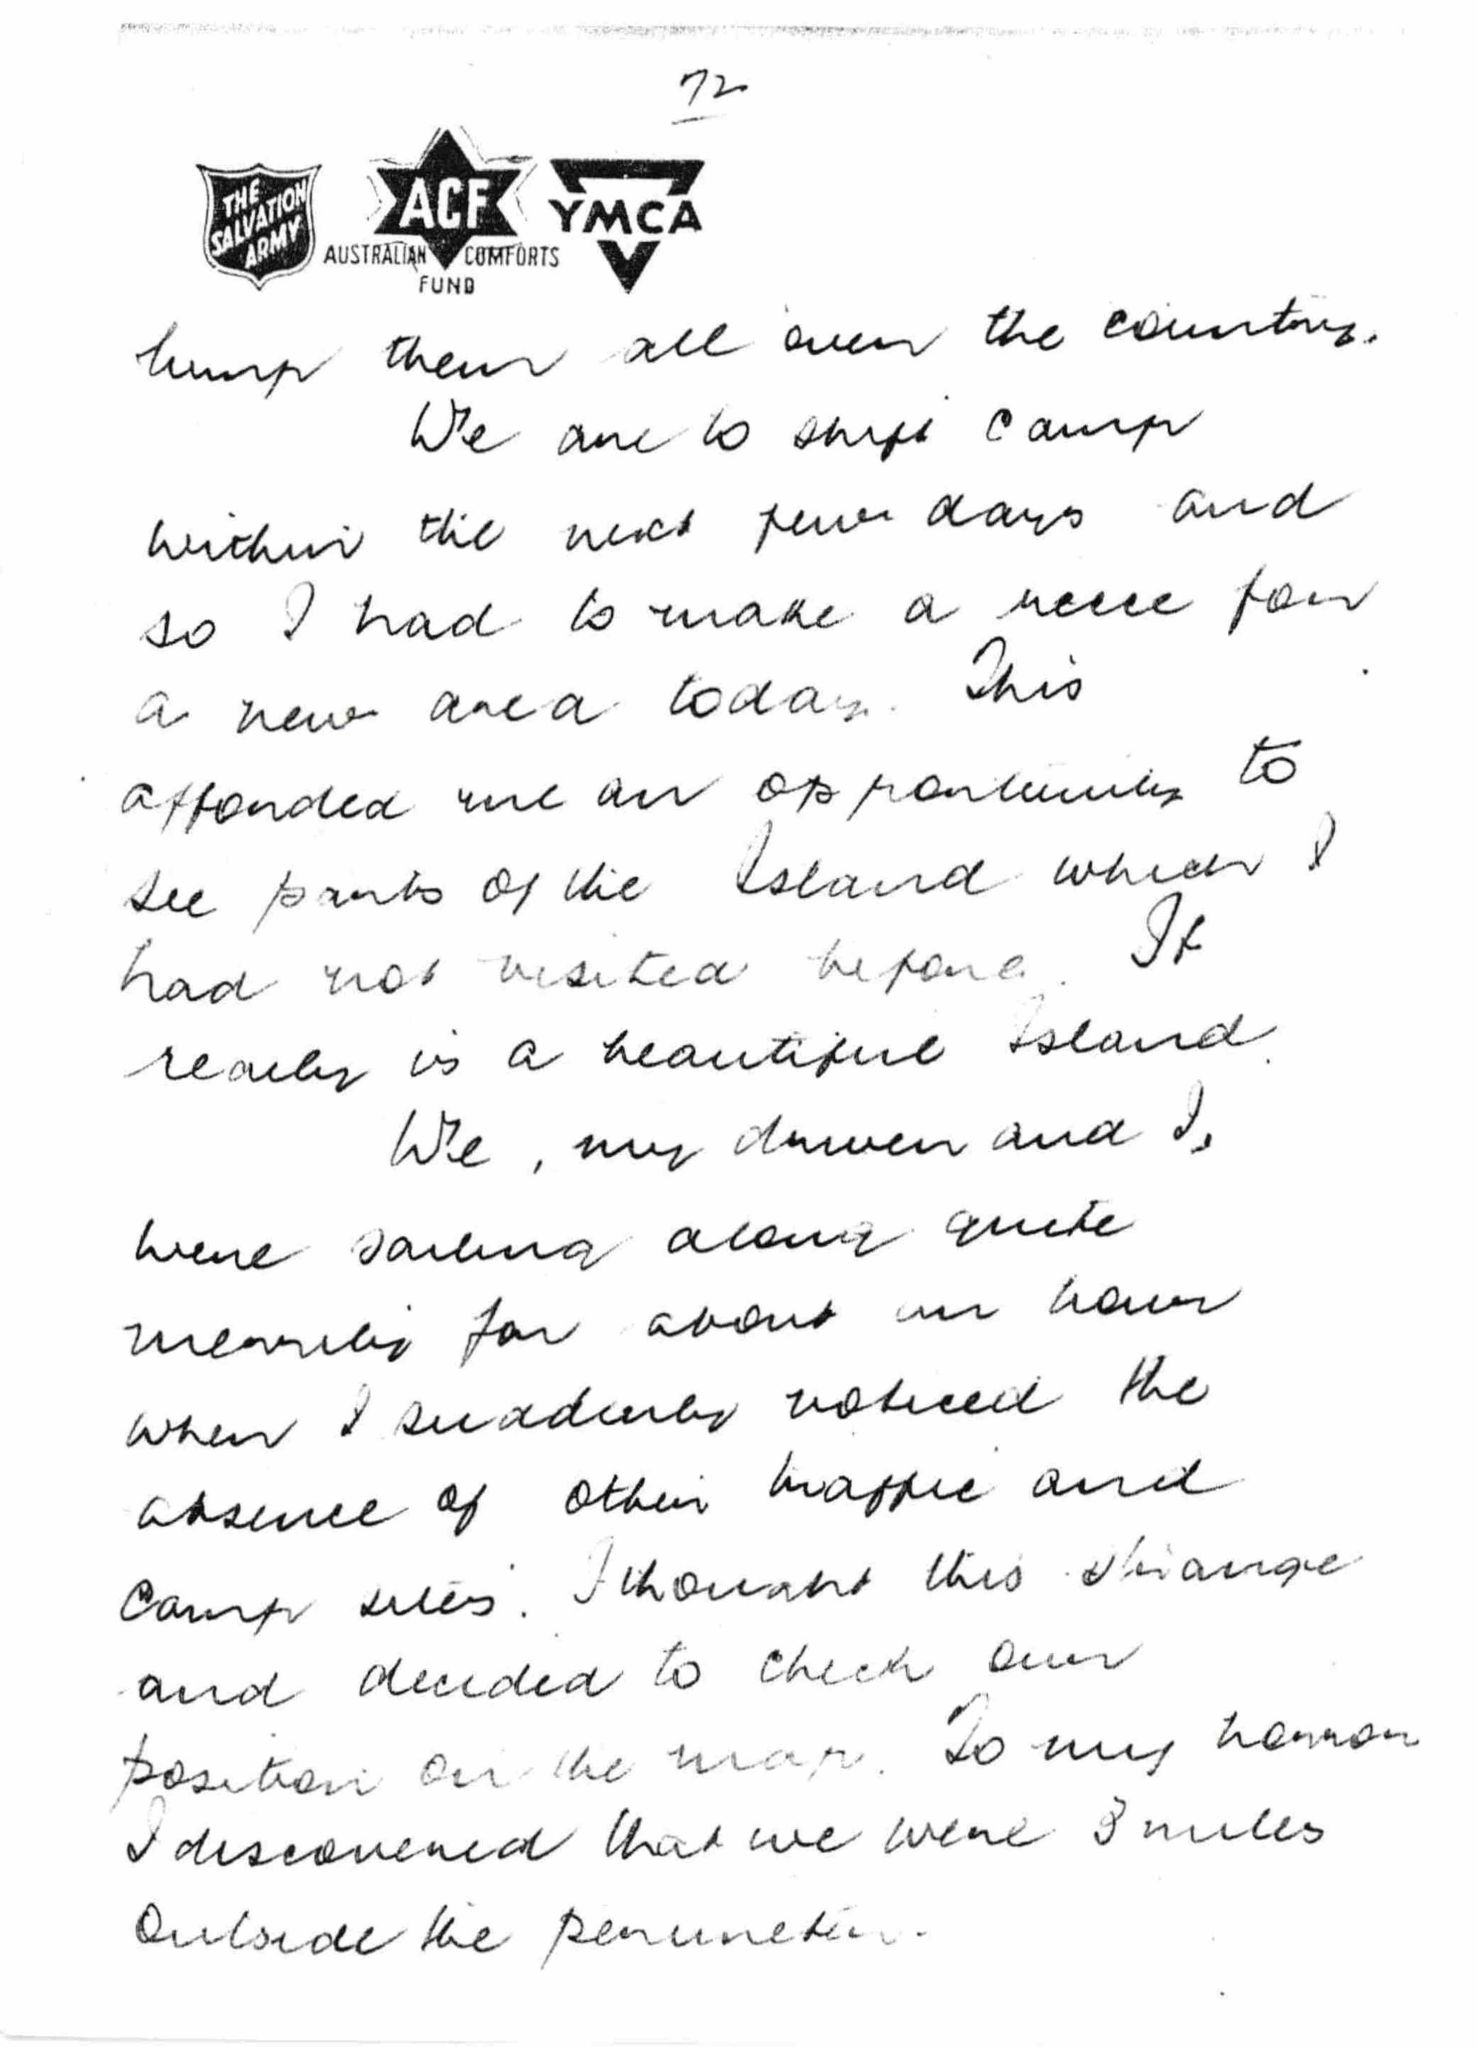 72
THE
SALVATION
ARMY
ACF
YMCA
AUSTRALIAN COMFORTS
FUND
hump them all over the country.
We are to shift camp
within the next few days and
so I had to make a recce for
a new area today. This
afforded me an opportunity to
see parts of the Island which I
had not visited before. It
really is a beautiful Island.
We, my driver and I,
were sailing along quite
merrily for about an hour
when I suddenly noticed the
absence of other traffic and
camp sites. I thought this strange
and decided to check our
position on the map. To my horror
I discovered that we were 3 miles
outside the perimeter.